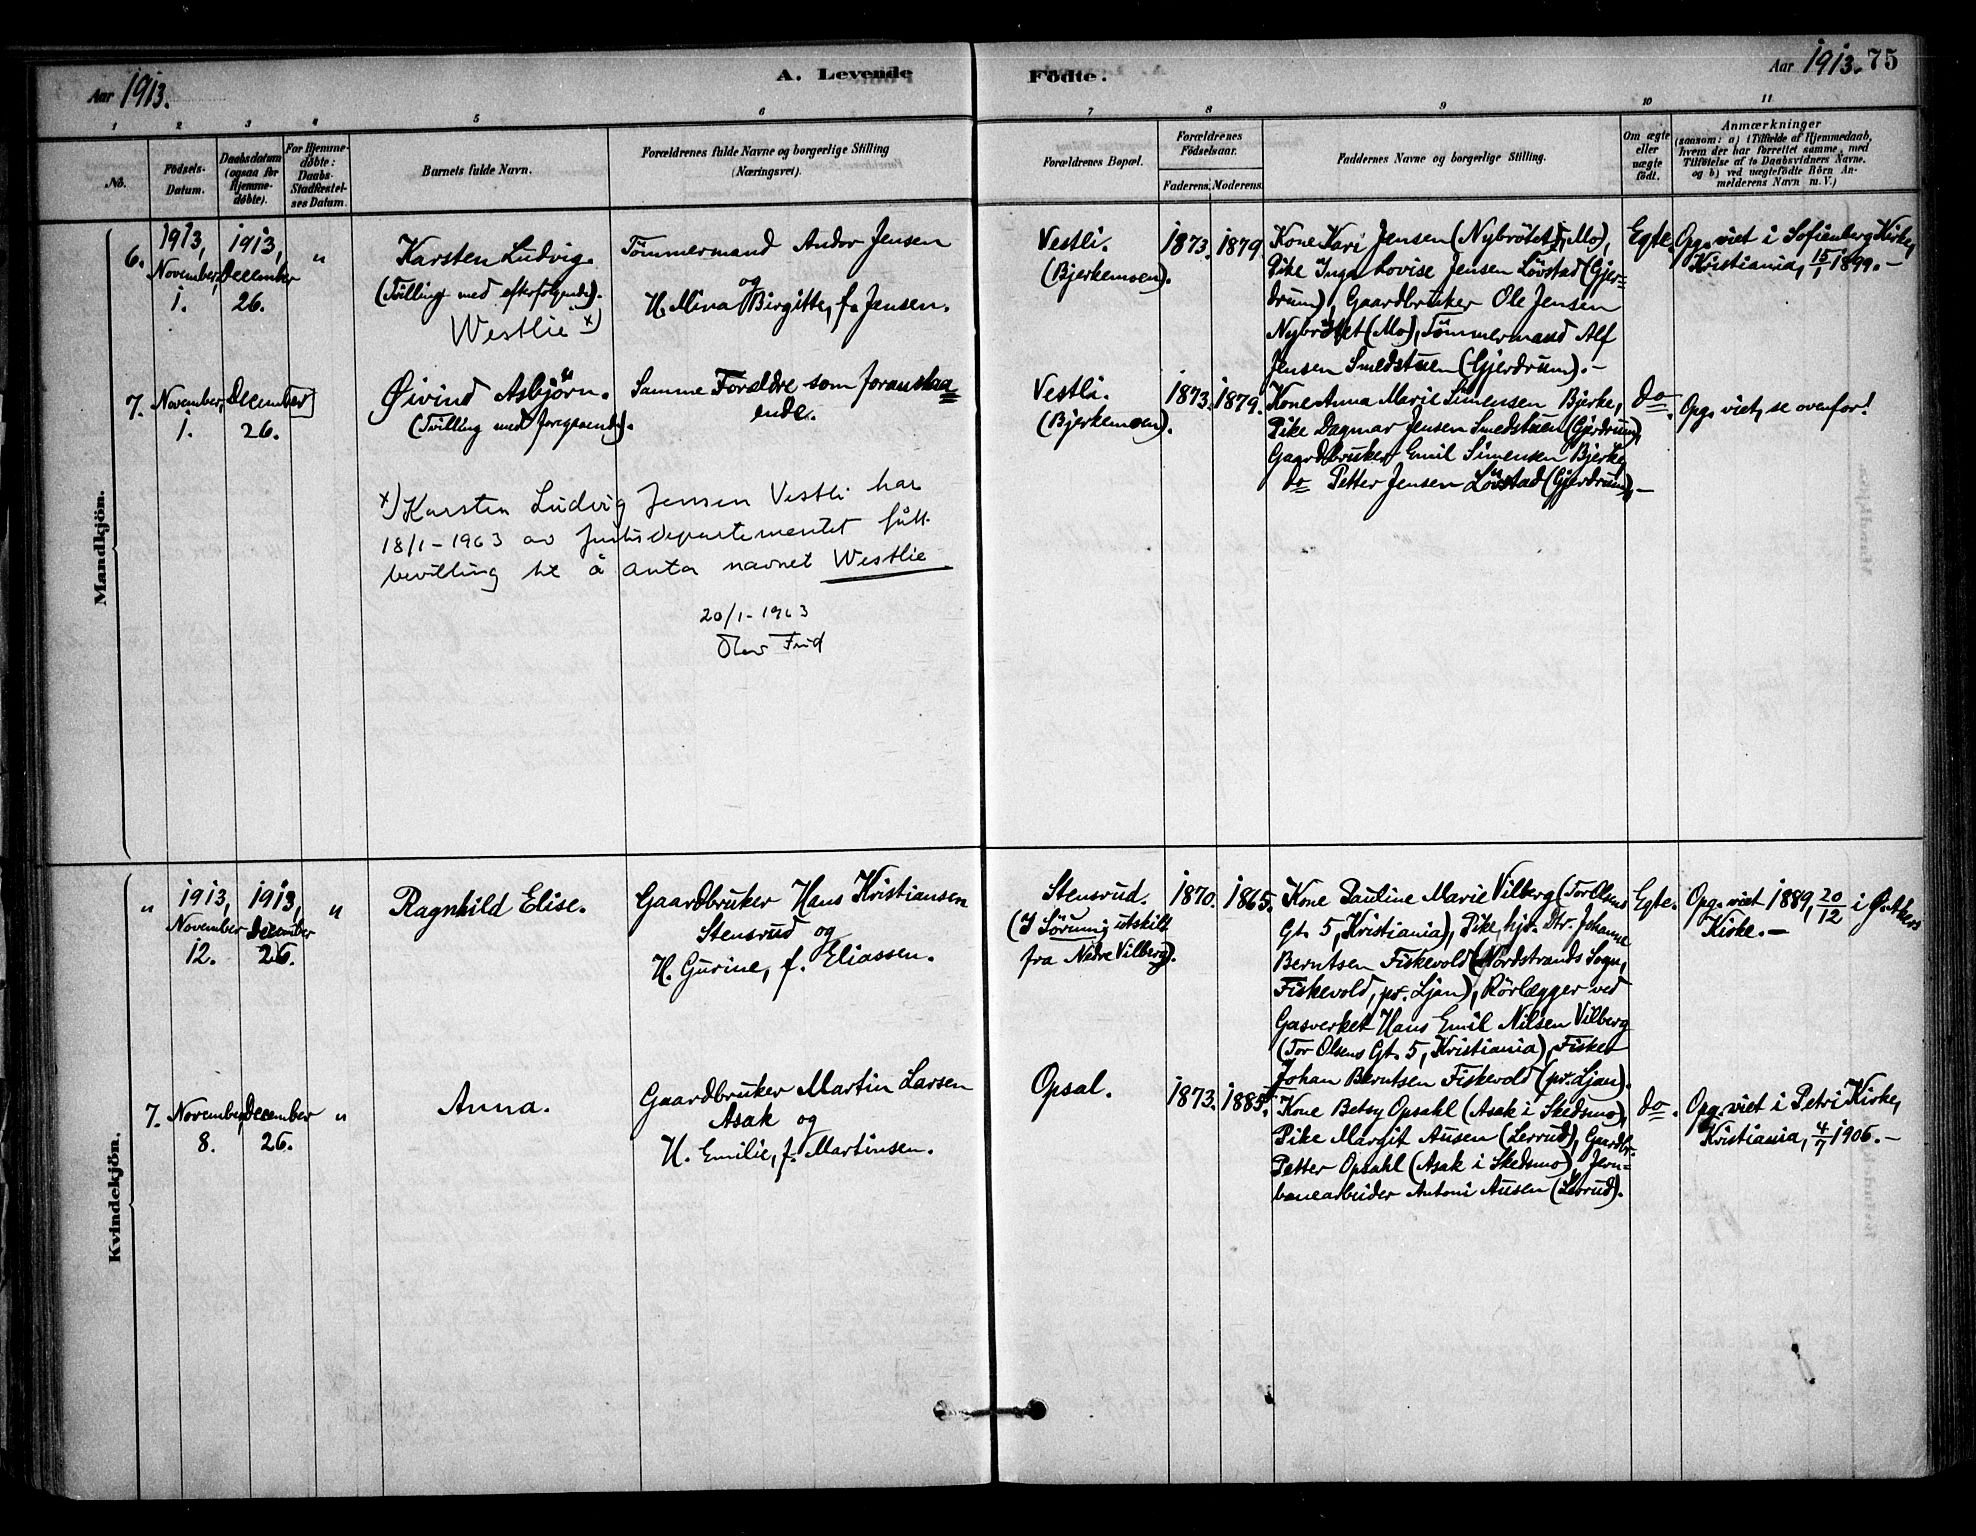 Aar 1913.
A. Levende
Födte.
Aar 1913. 75
1 2 3 4 5 6 7 8 9 10 11
No.
Födsels-
Datum.
Daabsdatum
(ogsaa for
Hjemme-
døbte).
For Hjemme-
døbte:
Daabs-
Stadfæstel-
ses Datum.
Barnets fulde Navn.
Forældrenes fulde Navne og borgerlige Stilling
(Næringsvei).
Forældrenes Bopæl.
Forældrenes
Födselsaar.
Faderens. Moderens.
Faddernes Navne og borgerlige Stilling.
Om ægte
eller
uægte
født.
Anmærkninger
(saasom: a) i Tilfælde af Hjemmedaab,
hvem der har forrettet samme, med
Tilføielse af to Daabsvidners Navne.
og b) ved uægtefødte Börn An-
melderens Navn m. V.)
Mandkjön.
6.
1913,
November,
1.
1913,
December
26.
"
Karsten Ludvig.
(Tvilling med efterfölgende).
Westlie x)
Tömmermand Andor Jensen
og
H. Mina Birgitte, f. Jensen.
Vestli.
(Bjerkemoen).
1873. 1879.
Kone Kari Jensen (Nybrötet, Mo),
Pike Inga Lovise Jensen Lövstad (Gjer-
drum), Gaardbruker Ole Jensen
Nybrötet (Mo), Tömmermand Alf
Jensen Smedstuen (Gjerdrum). -
Egte
Opg. viet i Sofienberg Kirke,
Kristiania, 15/1 1899. -
7.
November,
1.
December
26.
"
Øivind Asbjörn.
(Tvilling med foregaaende).
Samme Forældre som foranstaa-
ende.
Vestli.
(Bjerkemoen).
1873. 1879.
Kone Anna Marie Simensen Bjerke,
Pike Dagmar Jensen Smedstuen (Gjerdrum),
Gaardbruker Emil Simensen Bjerke,
do Petter Jensen Lövstad (Gjerdrum), -
do.
Opg. viet, se ovenfor!
x) Karsten Ludvig Jensen Vestli har
18/1 - 1963 av Justisdepartementet fått
bevilling til å anta navnet Westlie
20/1 - 1963
Kvindekjön.
"
1913,
November
12.
1913,
December
26.
"
Ragnhild Elise.
Gaardbruker Hans Kristiansen
Stensrud og
H. Gurine, f. Eliassen.
Stensrud.
(I Sörum; utskilt
fra Nedre Vilberg).
1870. 1865.
Kone Pauline Marie Vilberg (Tor Olsens
Gt. 5, Kristiania), Pike, hjv. Dtr. Johanne
Berntsen Fiskevold (Nordstrands Sogn,
Fiskevold, pr. Ljan), Rörlægger ved
Gasverket Hans Emil Nilsen Vilberg
(Tor Olsens Gt. 5, Kristiania), Fisker
Johan Berntsen Fiskevold (pr. Ljan).
Egte.
Opg. viet 1889, 20/12 i Ø. Akers
Kirke. -
7.
November,
8.
December
26.
"
Anna.
Gaardbruker Martin Larsen
Asak og
H. Emilie, f. Martinsen.
Opsal.
1873. 1885.
Kone Betsy Opsahl (Asak i Skedsmo),
Pike Margit Ausen (Lerrud), Gaardbr.
Petter Opsahl (Asak i Skedsmo), Jern-
banearbeider Antoni Ausen (Lerrud).
do.
Opg. viet i Petri Kirke,
Kristiania, 4/7 1906. -